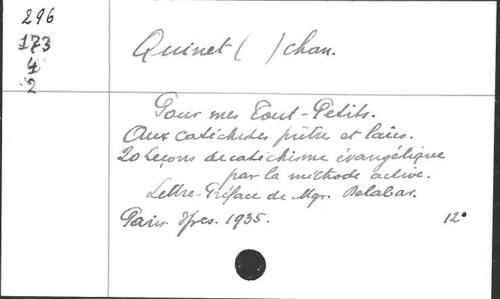 296
173
4
2
Quinet ( ) chan.
Pour mes Tout-Petits.
Aux catéchistes prêtres et laïcs.
20 Leçons de catéchisme évangélique
par la méthode active.
Lettre-Préface de Mgr. Delabar.
Paris. Spes. 1935. 12°